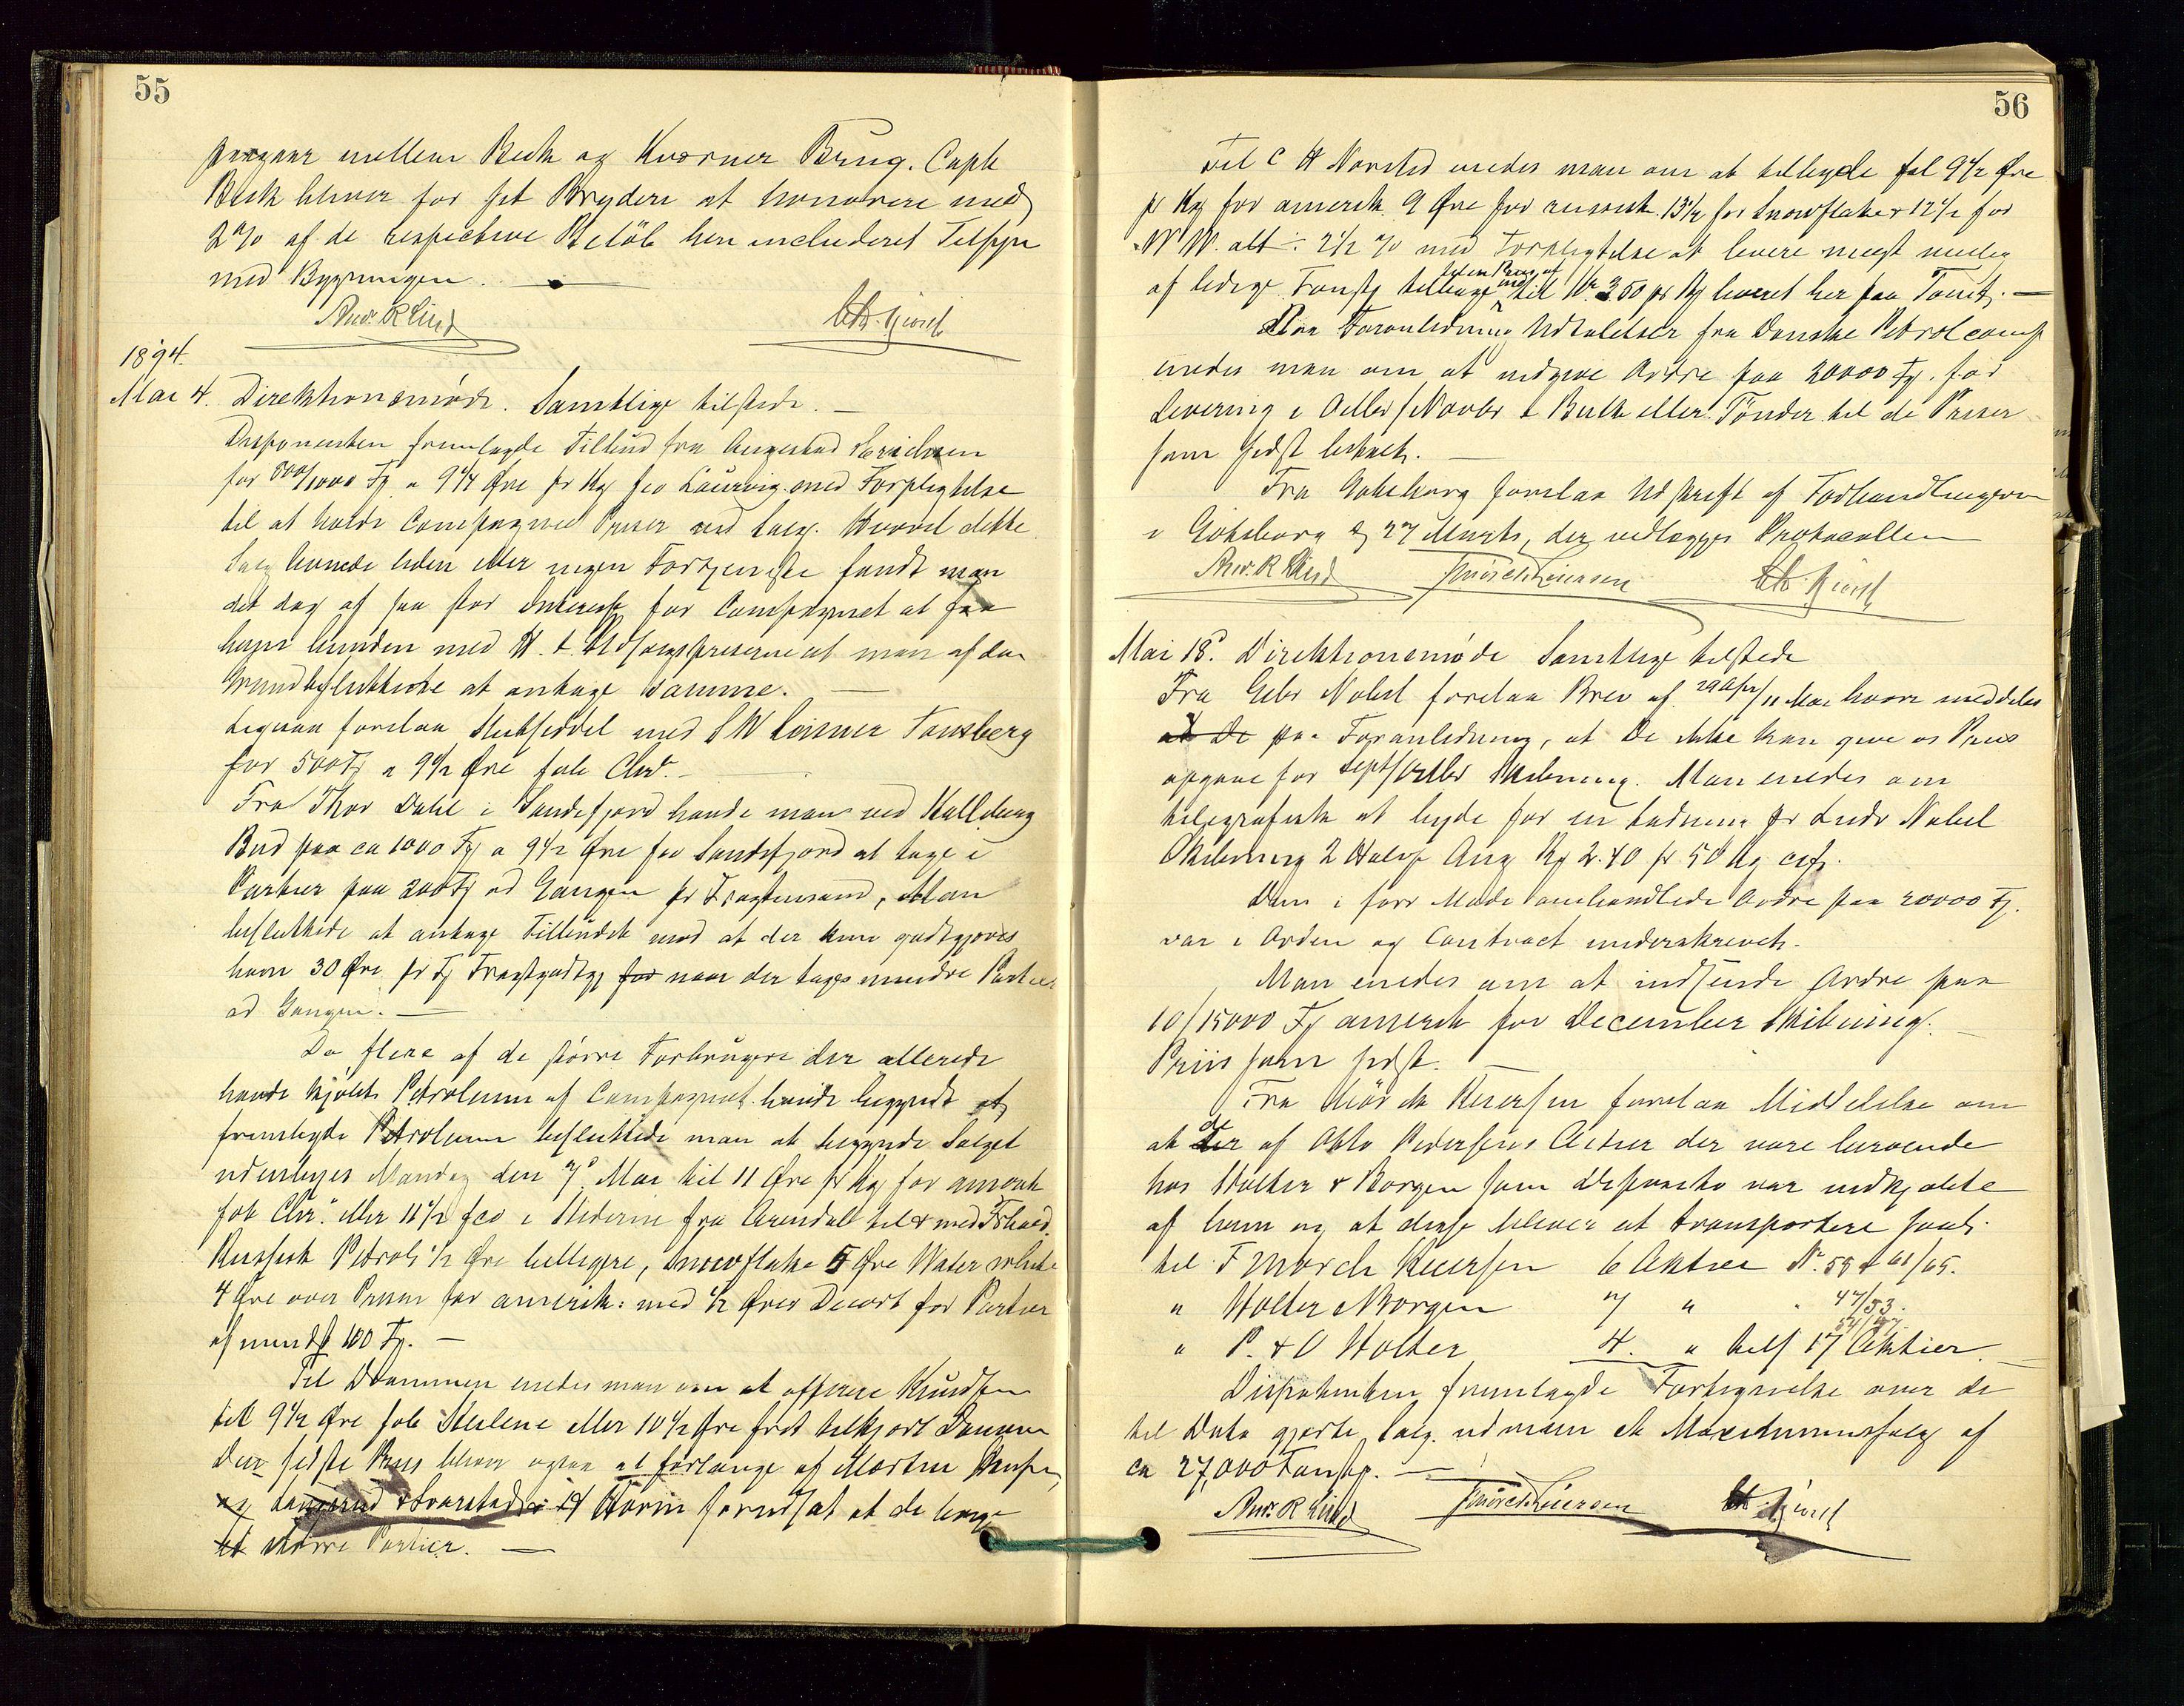 55
paagaar mellem Beck og Kværner Brug. Capt
Beck bliver for sit Bryderi at honorere med
2% af de respective Beløb heri includeret Tilsyn
med Bygningen.
Andr. R Lind Chr. Hiorth
1894.
Mai 4. Direktionsmøde. Samtlige tilstede. —
Disponenten fremlagde Tilbud fra Augestad Herichsen
for 500/1000 Fj a 9 1/4 Øre pr Kg fco Laurvig med Forpligtelse
til at holde Compagniets Priser ved Salg. Hvorvel dette
Salg levnede liden eller ingen Fortjeneste fandt man
det dog af saa stor Interesse for Compagniet at faa
hans bunden med H. t. Udsalgspriserne at man af den
Grund besluttede at antage samme. —
Ligesaa forelaa Slutseddel med S W Leisner Tønsberg
for 500 Fj a 9 1/2 Øre fob Chra. —
Fra Thor Dahl i Sandefjord havde man ved Kallevig
Bud paa ca 1000 Fj a 9 1/2 Øre fco Sandefjord at tage i
Partier paa 200 Fj ad Gangen pr Fragtemand, Man
besluttede at antage Tilbudet mod at der kun godtgjøres
ham 30 Øre pr Fj Fragtgodtgj for naar der tages mindre Partier
ad Gangen. —
Da flere af de større Forbrugere der allerede
havde kjøbt Petroleum af Compagniet havde begyndt at
frembyde Petroleum besluttede man at begynde Salget
udenbyes Mandag den 7de Mai til 11 Øre pr Kg for amerik
fob Chra. eller 11 1/2 fco i Stederne fra Arendal til & med Frhald.
Russisk Petrol: 1/2 Øre billigere, Snowflake 5 Øre Water white
4 Øre over Prisen for amerik: med 1/2 Øres Decort for Partier
af mindst 100 Fj. —
Til Drammen enedes man om at offerere Knudsen
til 9 1/2 Øre fob Steilene eller 10 1/2 Øre frit tilkjørt Drammen
Den sidste Pris bliver ogsaa at forlange af Morten Jensen,
og & Svarstad & H Horin forudsat at de tage
et større Partier. —
56
Til C H Narsted enedes man om at tilbyde fol 9 1/2 Øre
pr Kg for amerik 9 Øre for russisk. 13 1/2 for Snowflake & 12 1/2 for
W W. alt ÷ 2 1/2 % med Forpligtelse at levere mest mulig
af ledige Fustg tilbage til en Pris af Kr. 3.50 pr Kg leveret her paa Tomt. —
Paa Foranledning Udtalelser fra Danske Petrol comp
enedes man om at indgive Ordre paa 20000 Fj. for
Levering i Octbr/Novbr i Bulk eller Tønder til de Priser
som sidst betalt. —
Fra Gøteborg forelaa Udskrift af Forhandlingerne
i Gøteborg d 27 Marts, der vedlægges Protocollen
Andr. R Lind F Mørch Reiersen Chr. Hiorth
Mai 18de. Direktionsmøde Samtlige tilstede
Fra Gebr Nobel forelaa Brev af 29 Apr/11 Mai hvori meddeles
at De paa Foranledning, at De ikke kan give os Pris
opgave for Sept/Octbr Skibning. Man enedes om
telegrafisk at byde for en Ladning pr Ludv Nobel
Skibning 2 Halvp Aug Kr 2.40 pr 50 Kg cif.
Den i forr Møde omhandlede Ordre paa 20000 Fj.
var i Orden og Contract underskrevet.
Man enedes om at indsende Ordre paa
10/15000 Fj amerik for December Skibning.
Priis som sidst. —
Fra Mørch Reiersen forelaa Meddelelse om
at de af Otto Pedersens Actier der vare beroende
hos Holter & Borgen som Depositum var indkjøbte
af ham og at disse bliver at transportere saal:
til F Mørch Reiersen 6 Aktier No. 58 & 61/65.
" Holter & Borgen 7 " " 47/53.
" P. & O Holter 4. " 54/57. tils 17 Aktier. —
Disponenten fremlagde Fortegnelse over de
til Dato gjorte Salg. udvisen et Maximumssalg af
ca 27,000 Fustg. —
Andr. R Lind F Mørch Reiersen Chr. Hiorth